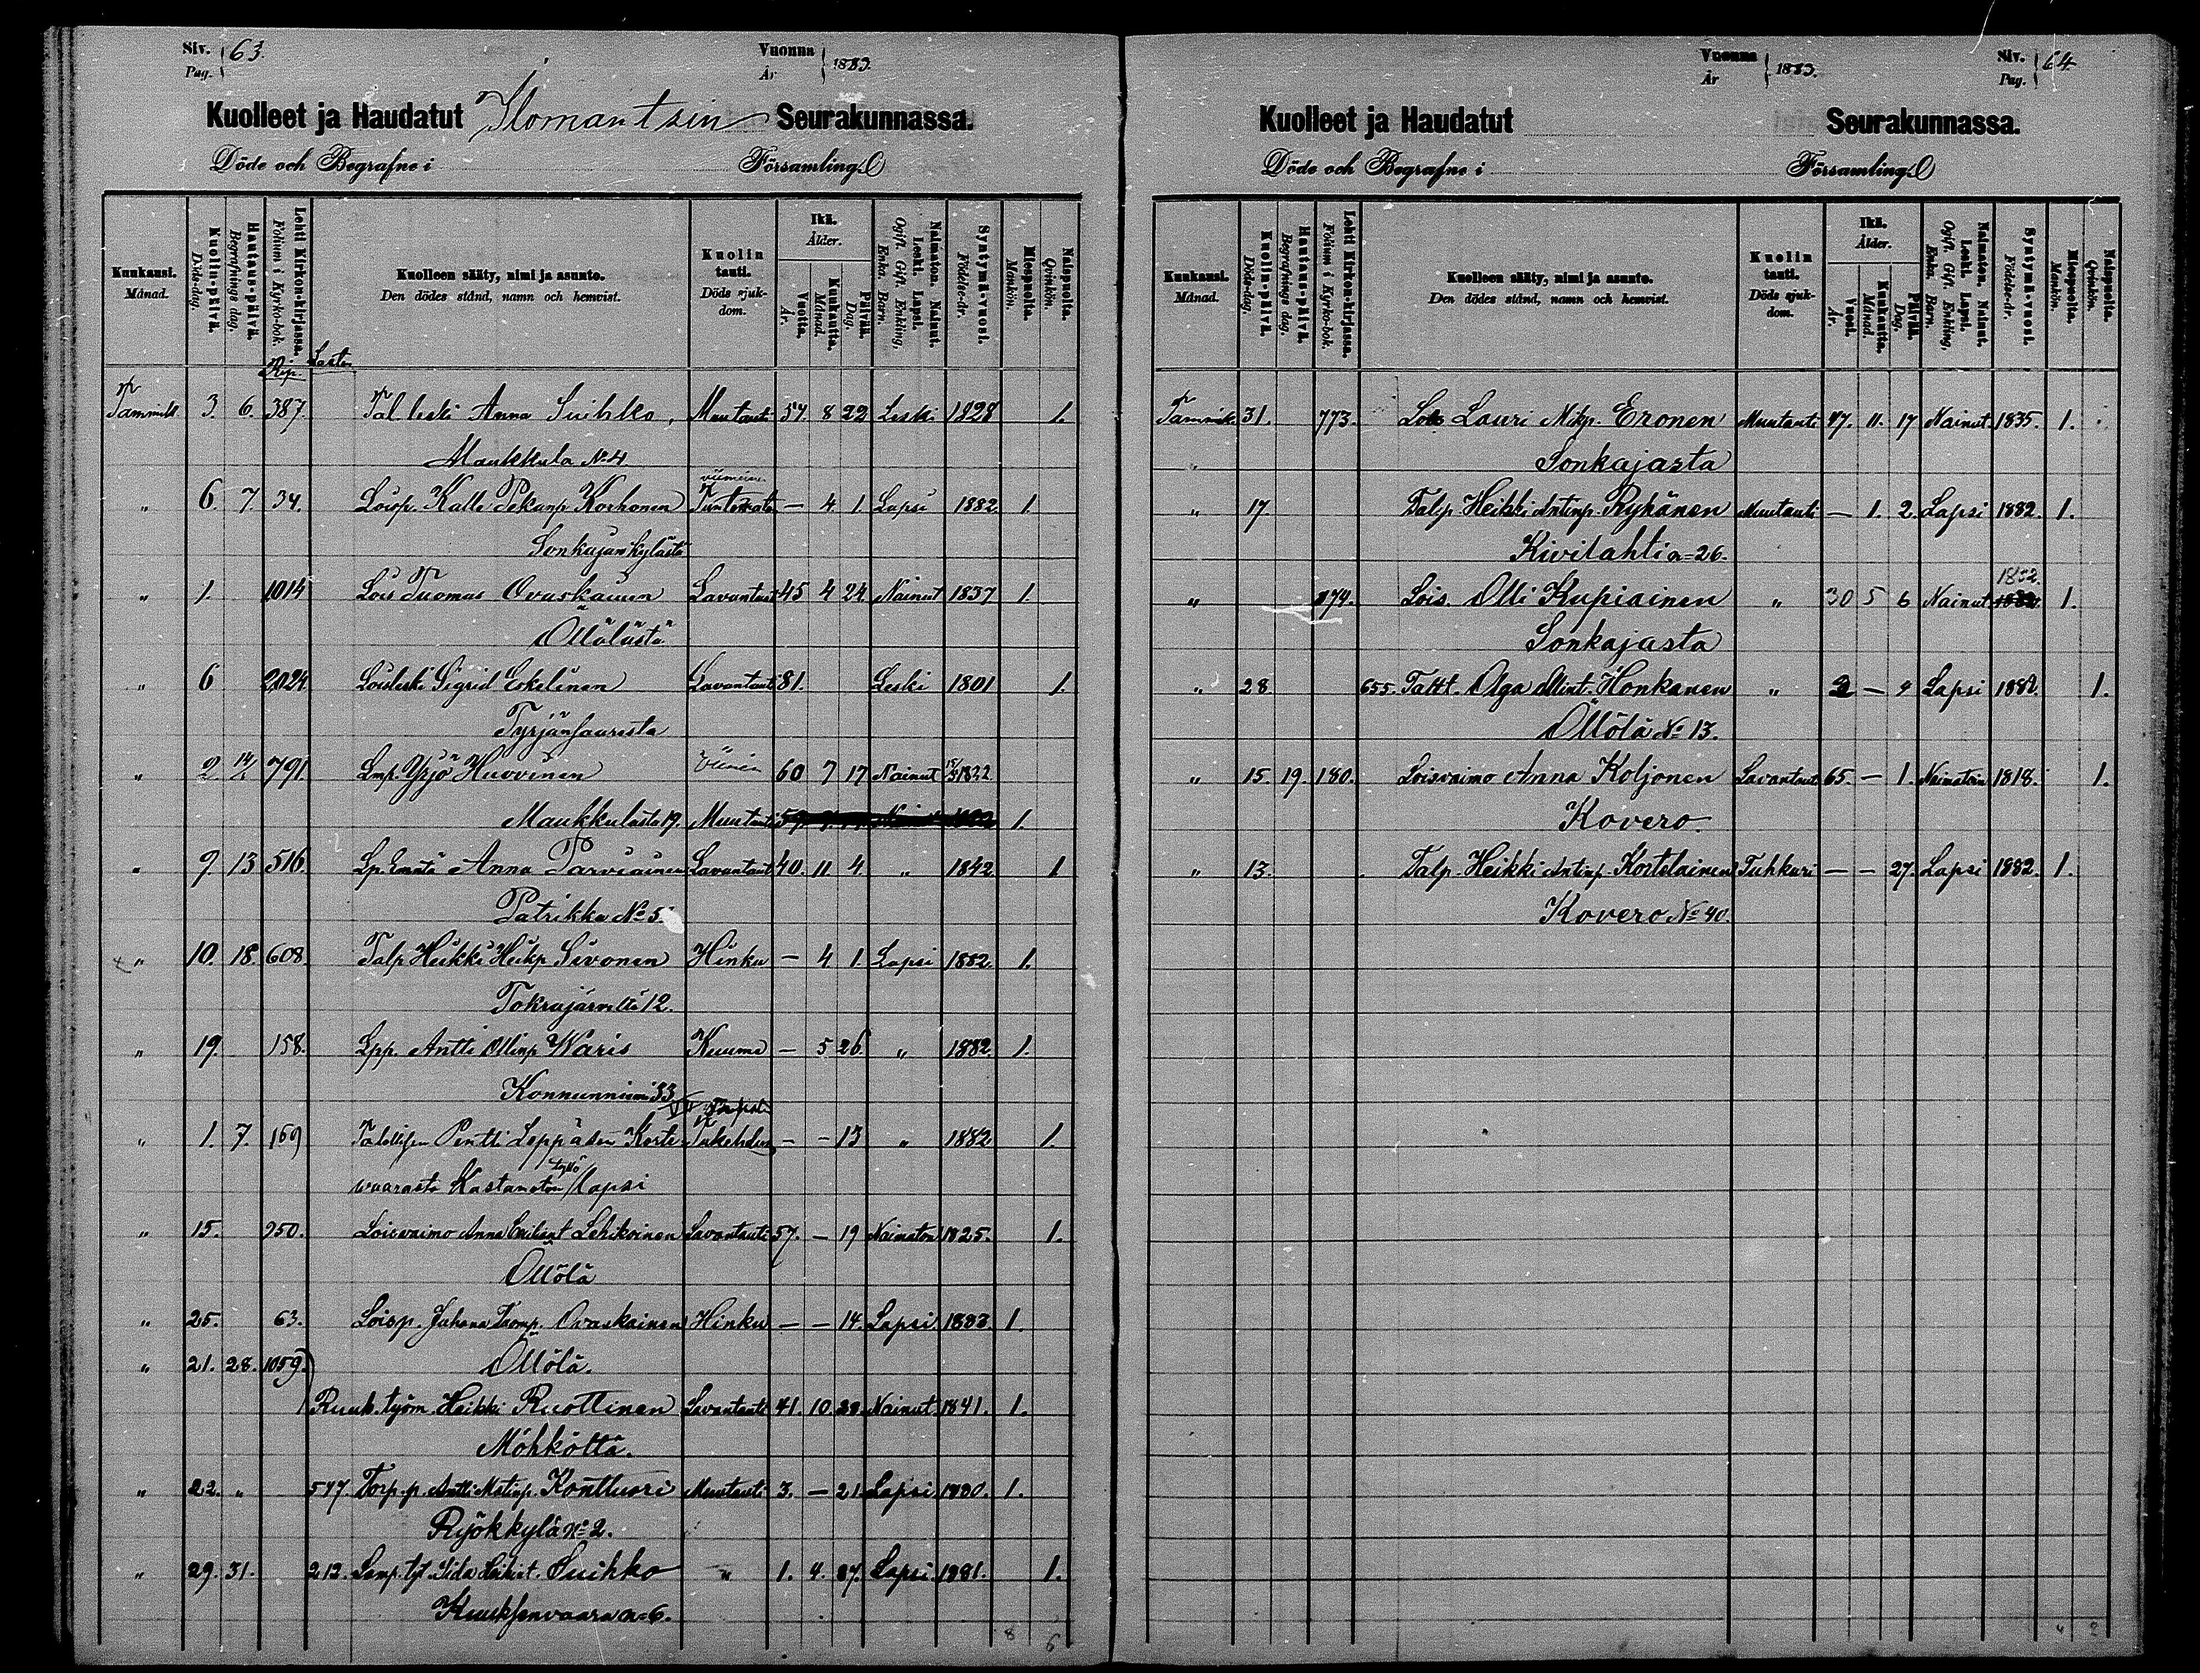 Siv. Pag. 63. Vuonna År 1883.
Kuolleet ja Haudatut Ilomantsin Seurakunnassa.
Döde och Begrafne i Församling.
Kuukausi. Månad. Kuolin-päivä. Döds-dag. Hautaus-päivä. Begrafnings dag. Lehti Kirkon-kirjassa. Folium i Kyrko-bok. Kuolleen sääty, nimi ja asunto. Den dödes stånd, namn och hemvist. Kuolin tauti. Döds sjukdom. Ikä. Ålder. Vuotta. År. Kuukautta. Månad. Päivää. Dag. Naimaton. Nainut. Leski. Lapsi. Ogift. Gift. Enkling, Enka. Barn. Syntymä-vuosi. Födelse-år. Miespuolia. Mankön. Naispuolia. Qvinkön.
Rip. Lasten
Tammik. 3. 6. 387. Tal leski Anna Suihko, Muu tauti 54. 8 22 Leski 1828 1.
Maukkula No 4
viimein
" 6. 7. 34. Loisp. Kalle Pekanp Korhonen Tuntematon — 4 1. Lapsi 1882 1.
Sonkajan kylästä
" 1. 1014 Lois Tuomas Ovaskainen Lavantaut 45 4 24 Nainut 1837 1.
Öllölästä
" 6 2024 Loisleski Sigrid Eskelinen Lavantaut 81. Leski 1801 1.
Tyrjänsaaresta
" 2 14/2 791. Lmp. Yrjö Huovinen 60 7 17 Nainut 1822
Maukkulasta 19. Muu tauti 1.
" 9. 13 516. Lp. Emäntä Anna Parviainen Lavantaut 40. 11 4. " 1842 1
Patrikka No 5.
" 10. 18. 608. Talp Heikki Heikp Sivonen Hinku — 4 1. Lapsi 1882. 1.
Tokrajärveltä 12.
" 19. 158. Lpp. Antti Ollinp Waris Kuume — 5 26 " 1882. 1.
Konnunniemi 33
" 1. 7. 169 Pentti Leppäsen Korte- Tukehdus — — 13 " 1882 1.
tyttö
vaarasta Kastamaton lapsi
" 15. 950. Loisvaimo Anna Lehikoinen Lavantauti 57. — 19 Naimaton 1825. 1.
Öllölä
" 25. 63. Loisp. Juhana Tuomp. Ovaskainen Hinku — — 14. Lapsi. 1883. 1.
" 21. 28. 1059. Öllölä.
Ruuk. työm. Heikki Ruottinen Lavantauti 41. 10 Nainut. 1841. 1.
Möhköttä.
" 22. " 577. Torp. p. Antti Matinp. Konttuori Muutauti 3. — 21 Lapsi. 1880. 1.
Ryökkylä No 2.
" 29. 31. 212. Lamp. tyt Iida Heikint. Suihko " 1. 4. 27. Lapsi 1881. 1.
Kuuksenvaara No 6.
8 6
Vuonna År 1883. Siv. Pag. 64
Kuolleet ja Haudatut Seurakunnassa.
Döde och Begrafne i Församling.
Kuukausi. Månad. Kuolin-päivä. Döds-dag. Hautaus-päivä. Begrafnings dag. Lehti Kirkon-kirjassa. Folium i Kyrko-bok. Kuolleen sääty, nimi ja asunto. Den dödes stånd, namn och hemvist. Kuolin tauti. Döds sjukdom. Ikä. Ålder. Vuosi. År. Kuukautta. Månad. Päivää. Dag. Naimaton. Nainut. Leski. Lapsi. Ogift. Gift. Enkling, Enka. Barn. Syntymä-vuosi. Födelse-år. Miespuolia. Mankön. Naispuolia. Qvinkön.
Tammik. 31. 773. Lois Lauri Mikp. Eronen Muutauti 47. 11. 17 Nainut. 1835. 1.
" Sonkajasta
" 17 Talp. Heikki Antinp. Ryhänen Muutauti — 1. 2. Lapsi 1882. 1.
Kivilahti No 26.
1852.
" 874. Lois. Olli Kupiainen " 30 5 6 Nainut 1.
Sonkajasta
" 28. 655. Taltt. Aga Antint. Honkanen " 2 — 4 Lapsi 1.
Öllölä No 13.
" 15. 19. 180. Loisvaimo Anna Koljonen Lavantaut 65. — 1. Naimaton 1818. 1.
Kovero.
" 13. Talp. Heikki Antinp. Kortelainen Tuhkuri — — 27. Lapsi 1882. 1.
Kovero No 40.
4 2